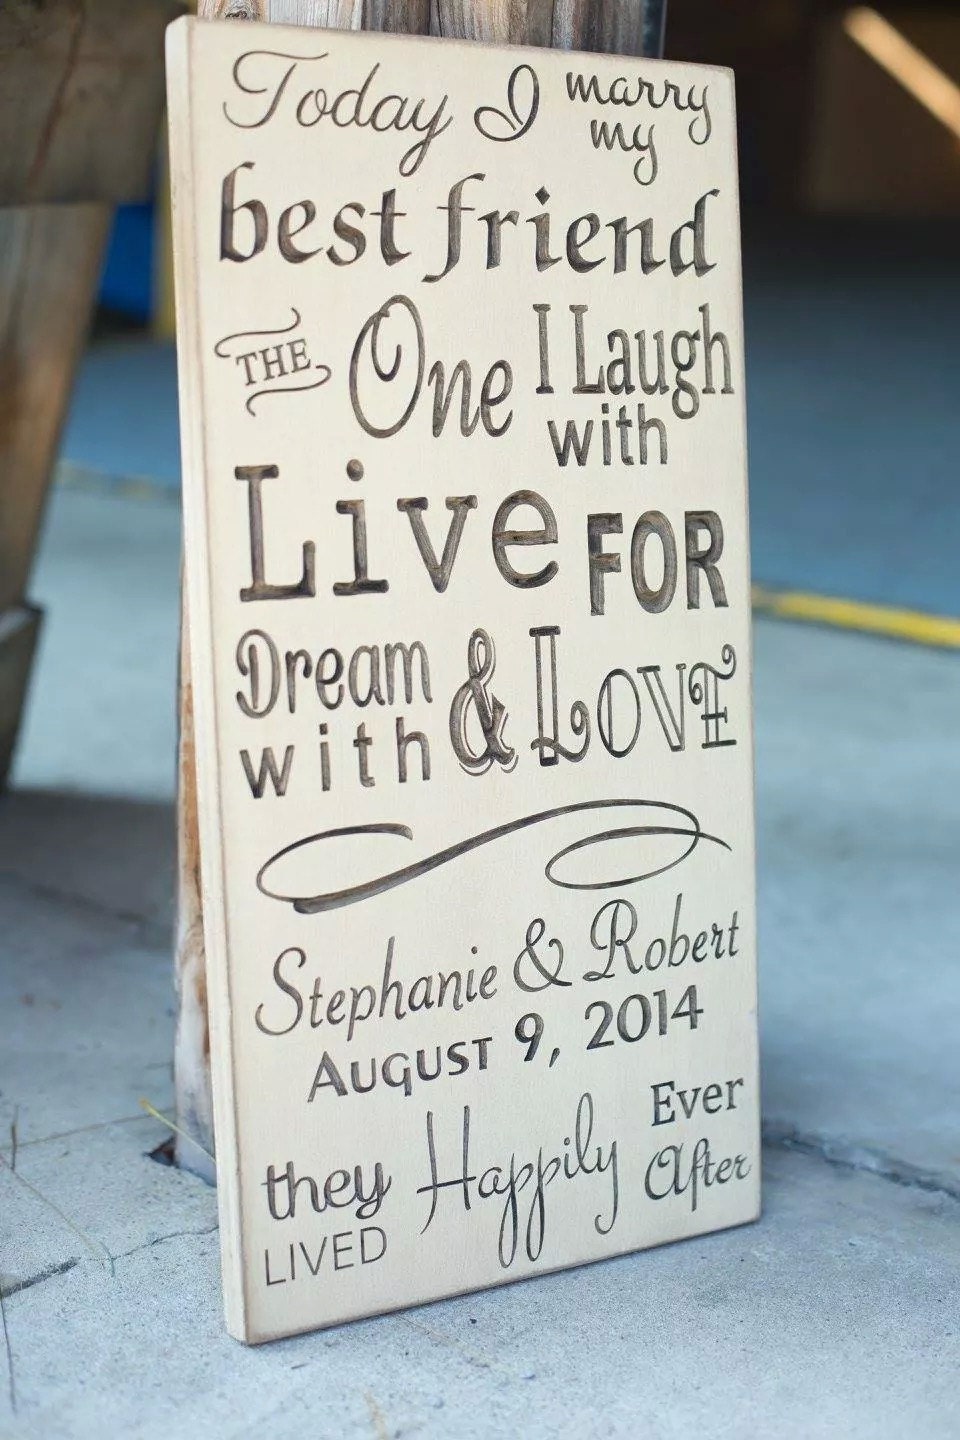 Today I marry
my
best friend
THE One I Laugh
with
Live FOR
Dream & LOVE
with
Stephanie & Robert
AUGUST 9, 2014
they Happily Ever
LIVED After